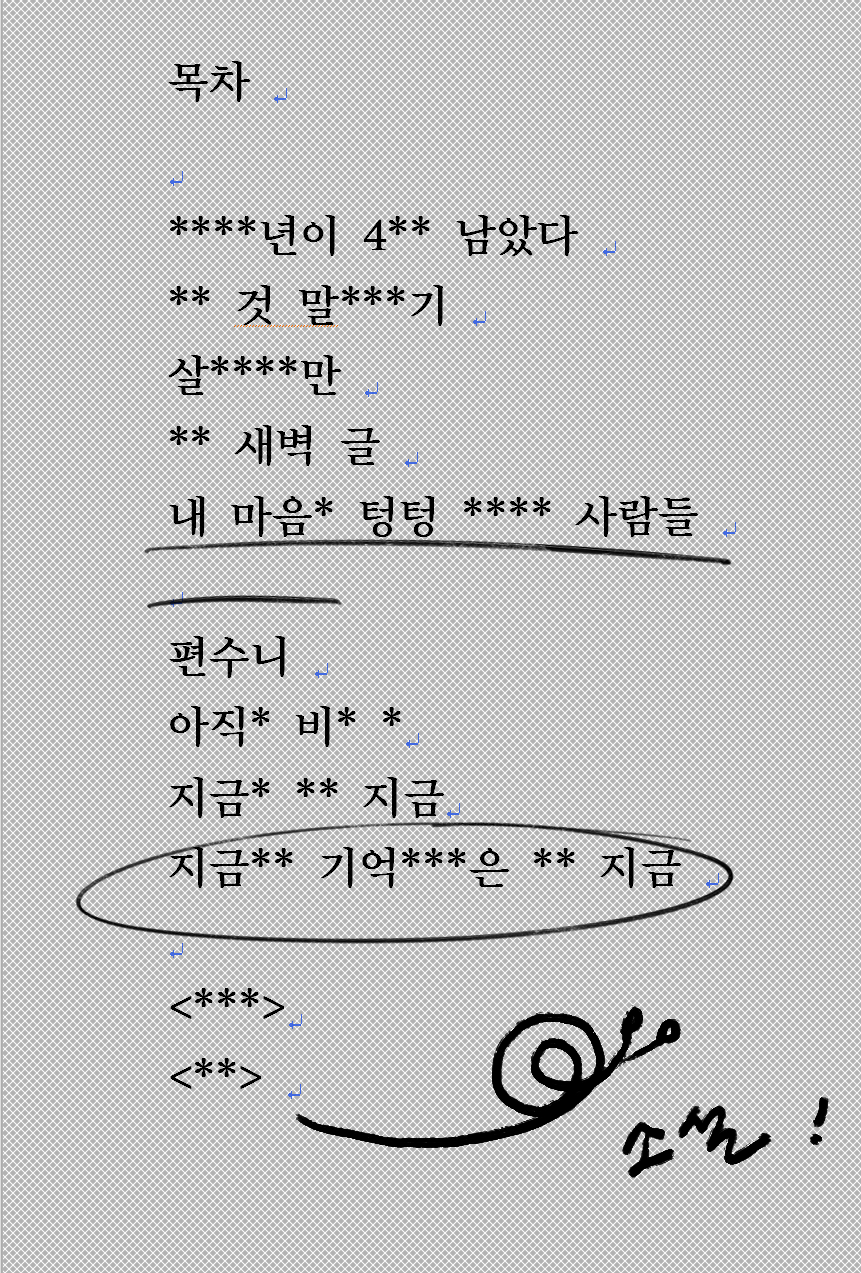 목차
****년이 4** 남았다
** 것 말***기
살****만
** 새벽 글
내 마음* 텅텅 **** 사람들
편수니
아직* 비* *
지금* ** 지금
지금** 기억***은 ** 지금
<***>
<**>
소설 !